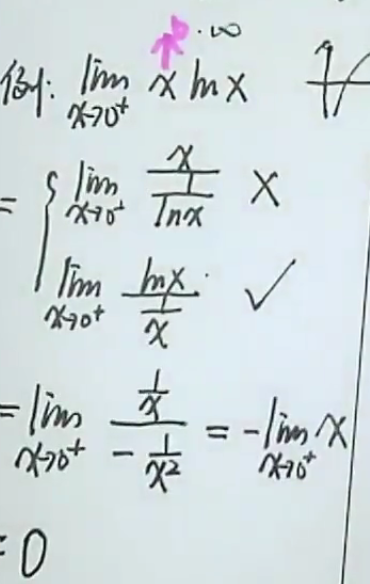 0·∞
例: lim x→0⁺ x ln x
= { lim x→0⁺ x / (1/ln x) ×
lim x→0⁺ ln x / (1/x) ✓
= lim x→0⁺ (1/x) / (-1/x²) = -lim x→0⁺ x
= 0